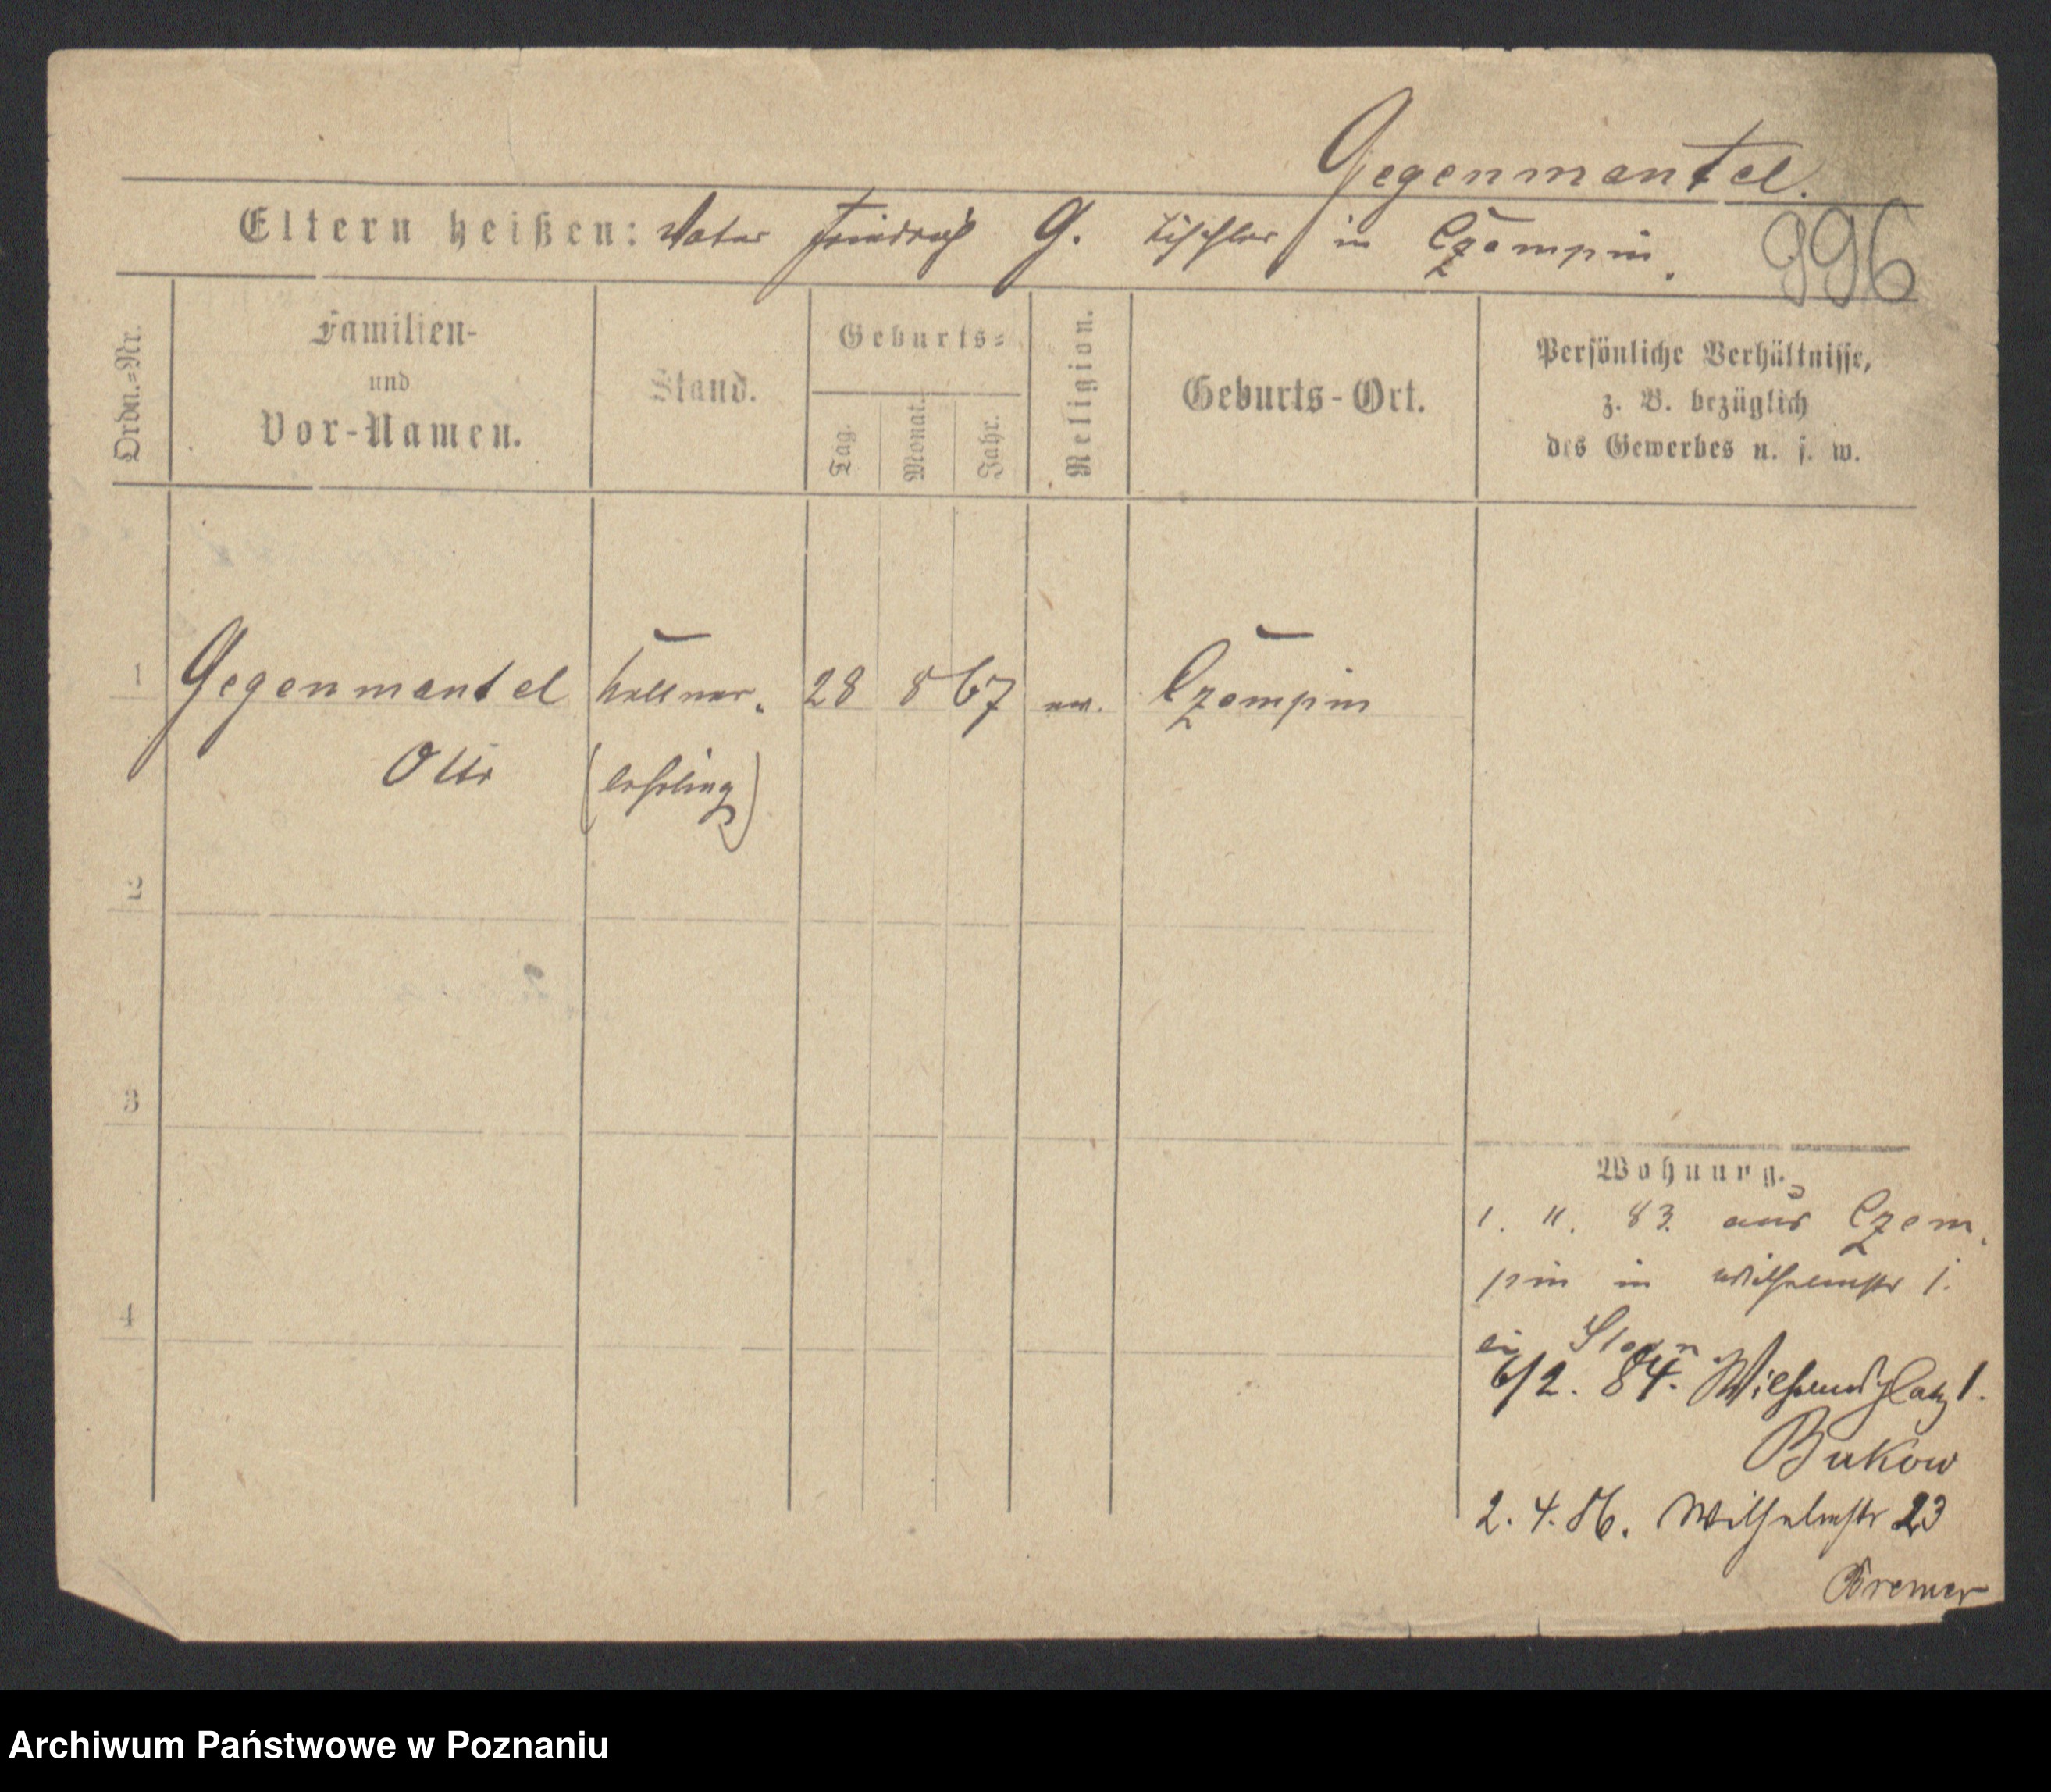 Gegenmantel.
996
Eltern heißen: Vater Friedrich G. Tischler in Czempin.
Ordn.=Nr.
Familien-
und
Vor-Namen.
Stand.
Geburts=
Tag.
Monat.
Jahr.
Religion.
Geburts-Ort.
Persönliche Verhältnisse,
z. B. bezüglich
des Gewerbes u. s. w.
1 Gegenmantel Kellner. 28 8 67 ev. Czempin
Otto (lehrling)
2
3
4
Wohnung.
1. 11. 83. aus Czem
pin in Wilhelmstr 1.
bei
6/2. 84. Wilhelmsplatz 1.
Bukow
2. 4. 86. Wilhelmstr 23
Bremer
Archiwum Państwowe w Poznaniu